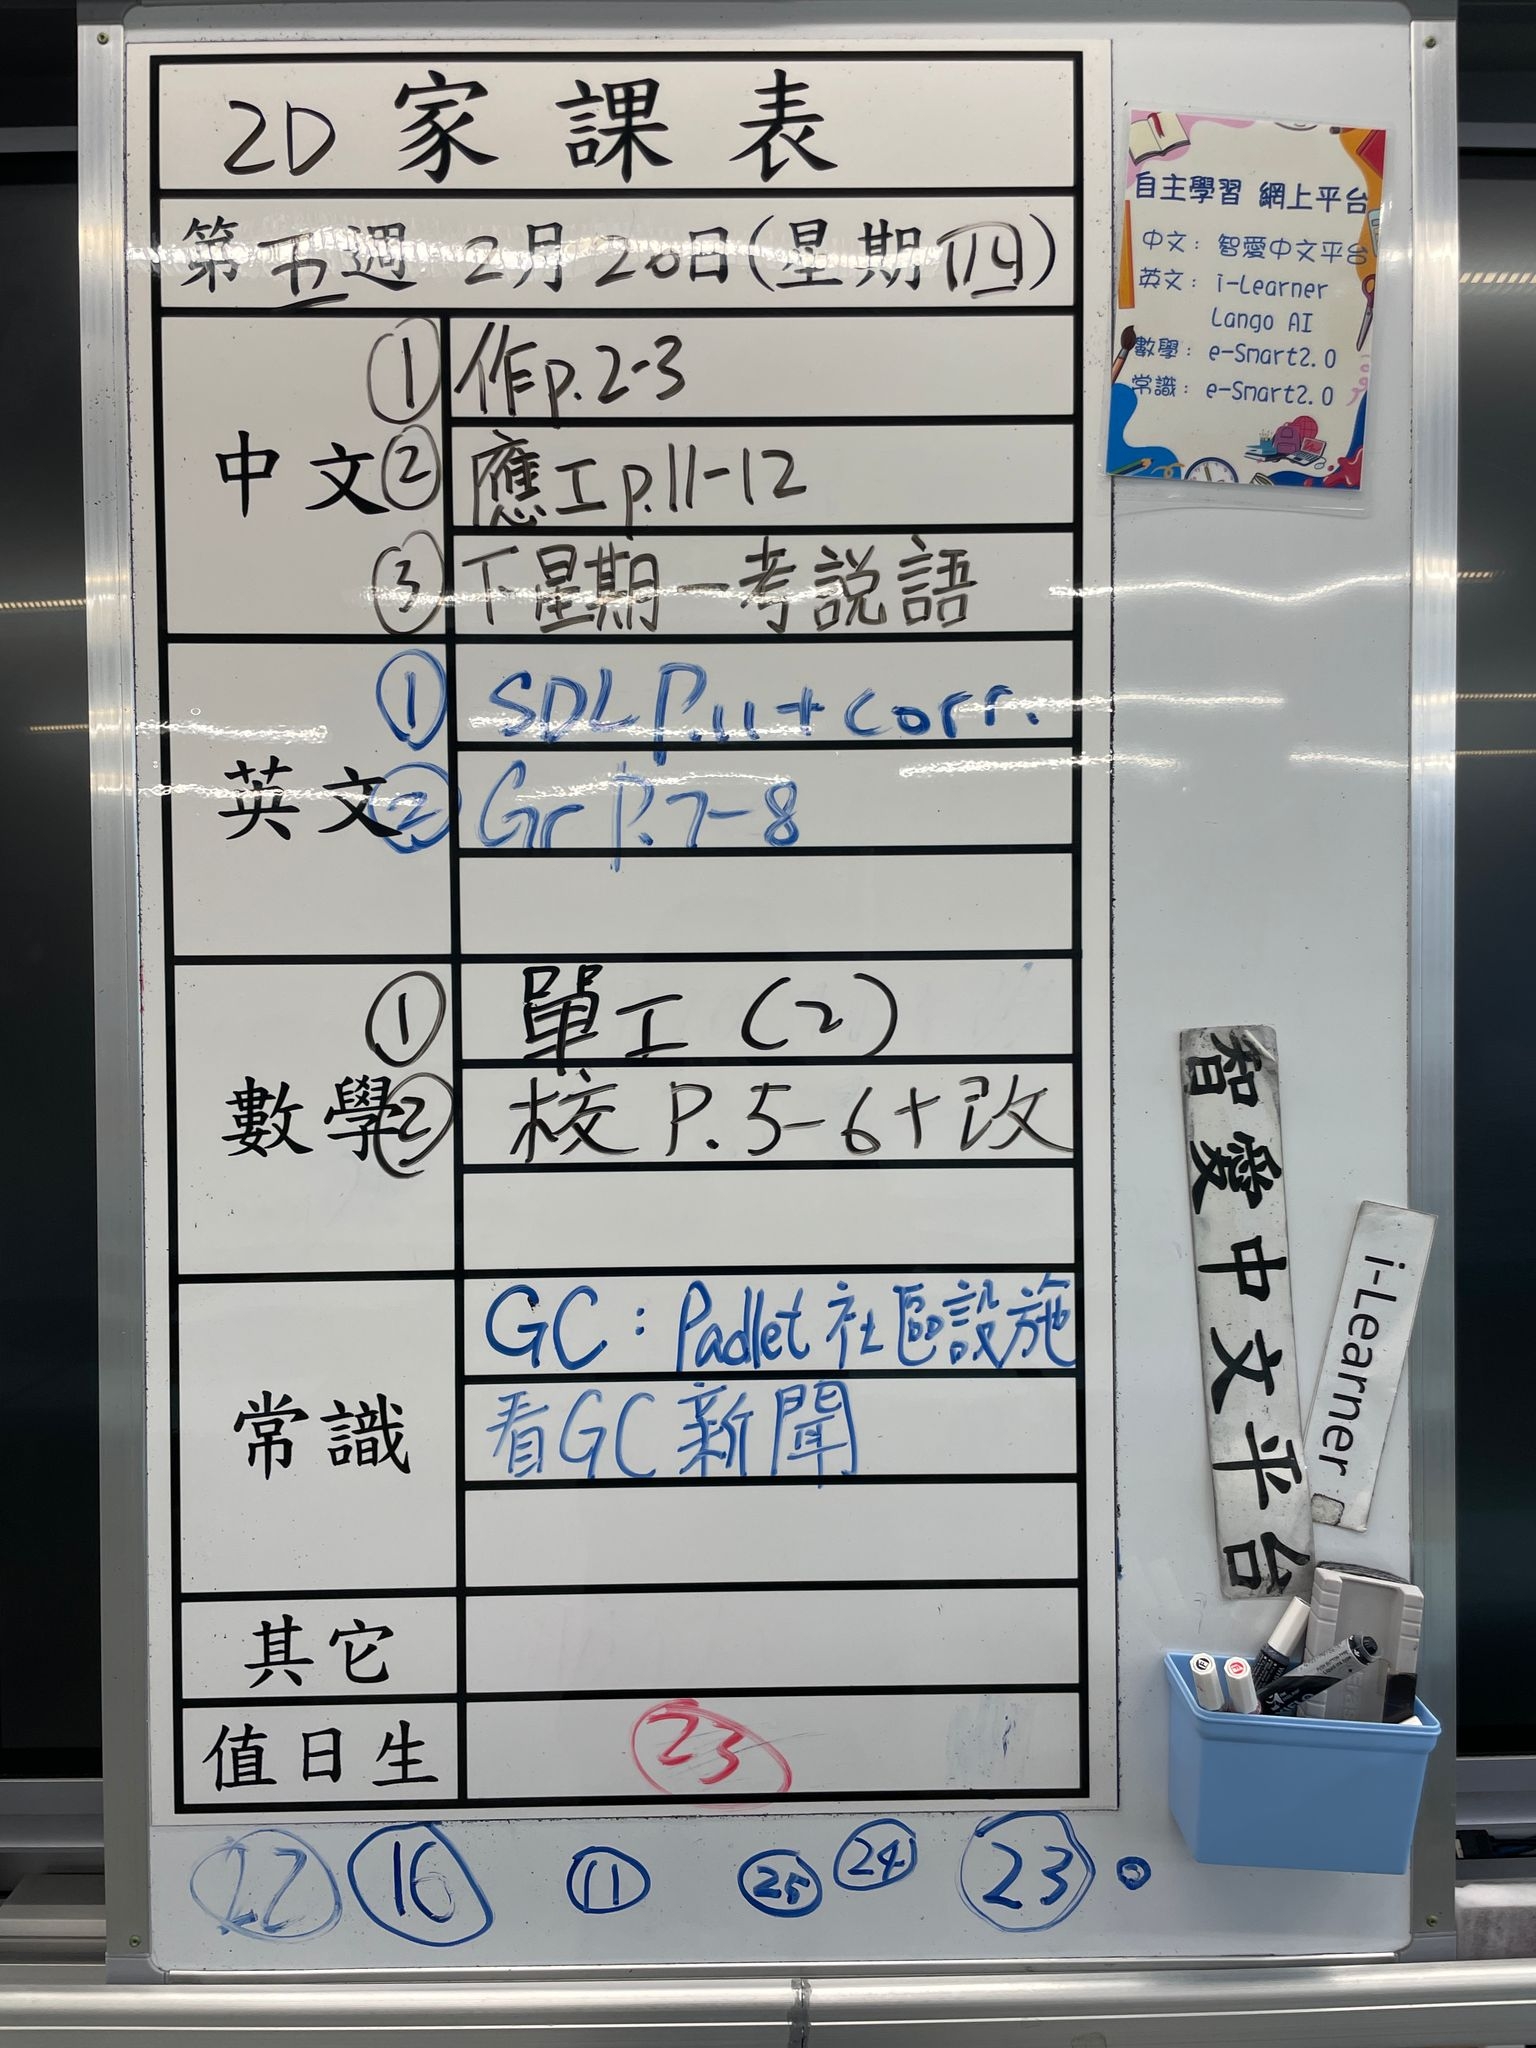 2D 家課表
第五週 2月20日(星期四)
中文
① 作p.2-3
② 應工p.11-12
③ 下星期一考說語
英文
① SDL P.11+corr.
② Gr P.7-8
數學
① 單工 (2)
② 校 P.5-6+改
常識
GC:Padlet社區設施
看GC新聞
其它
值日生
23
22 16 11 25 24 23
自主學習 網上平台
中文:智愛中文平台
英文:i-Learner
Lango AI
數學:e-Smart2.0
常識:e-Smart2.0
智愛中文平台
i-Learner